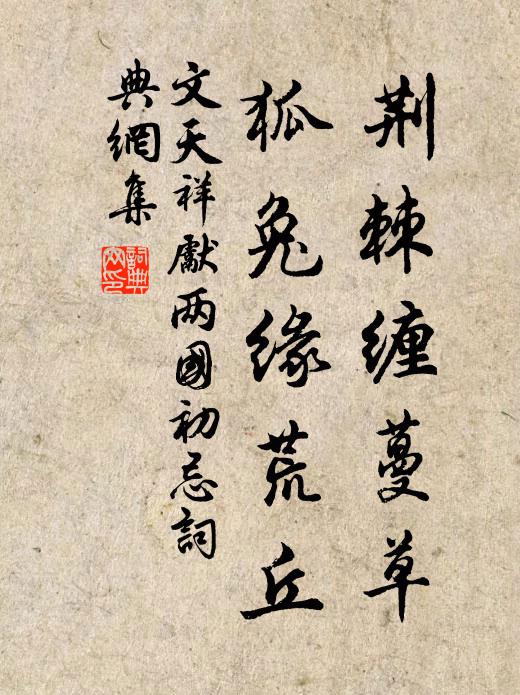 荆棘缠蔓草
狐兔缘荒丘
文天祥獻两國初忌詞
典網集
詞典網印